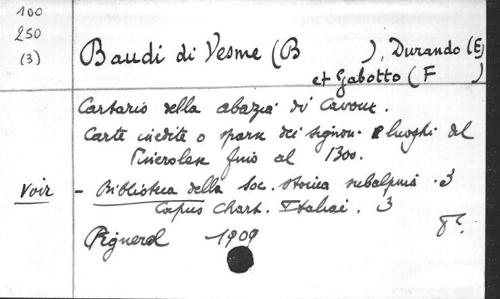 100
250
(3)
Baudi di Vesme (B ), Durando (E)
et Gabotto (F )
Cartario della abazia di Cavour.
Carte inedite o sparse dei signori e luoghi del
Pinerolese fino al 1300.
Voir - Biblioteca della Soc. storica subalpina. 3
Corpus Chart. Italiae. 3
Pignerol 1909
8°.